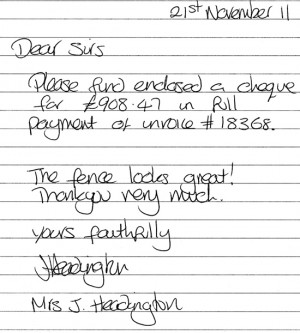 21st November 11
Dear Sirs
Please find enclosed a cheque
for £908.47 in full
payment of invoice #18368.
The fence looks great!
Thankyou very much.
yours faithfully
JHeadington
Mrs J. Headington